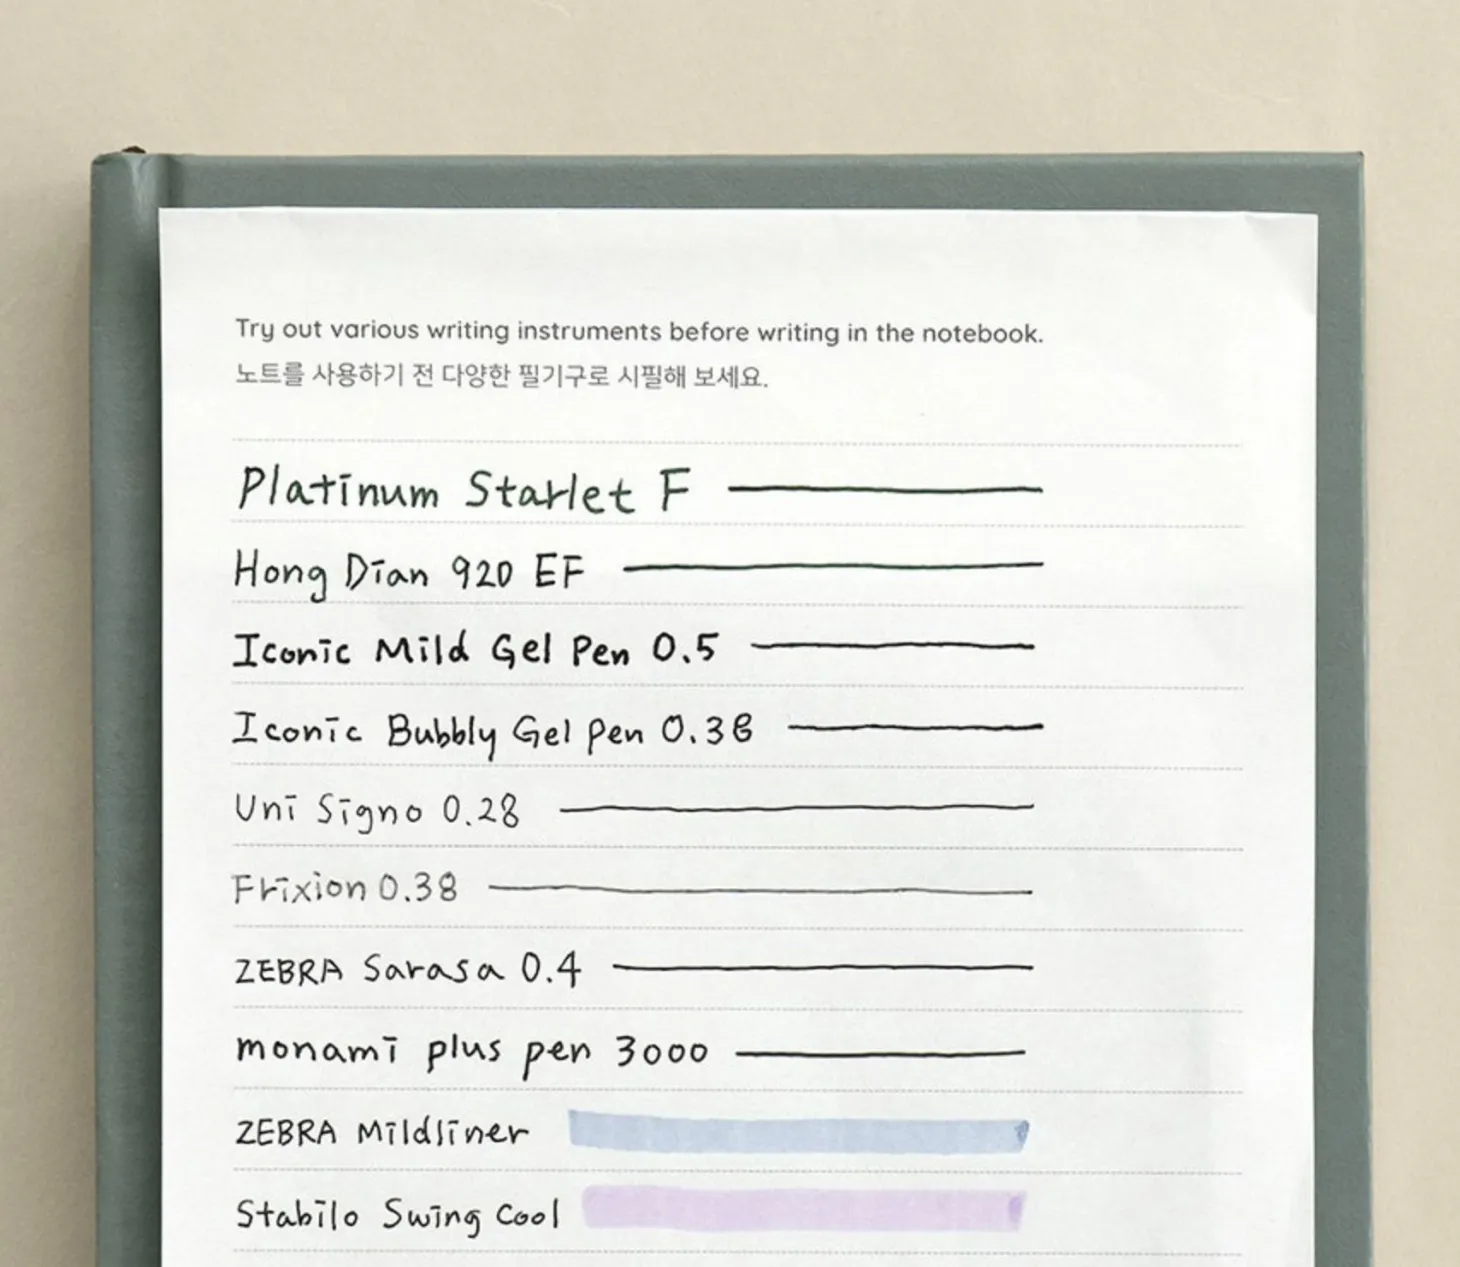 Try out various writing instruments before writing in the notebook.
노트를 사용하기 전 다양한 필기구로 시필해 보세요.
Platinum Starlet F
Hong Dian 920 EF
Iconic Mild Gel Pen 0.5
Iconic Bubbly Gel Pen 0.38
Uni Signo 0.28
Frixion 0.38
ZEBRA Sarasa 0.4
monami plus pen 3000
ZEBRA Mildliner
Stabilo Swing Cool